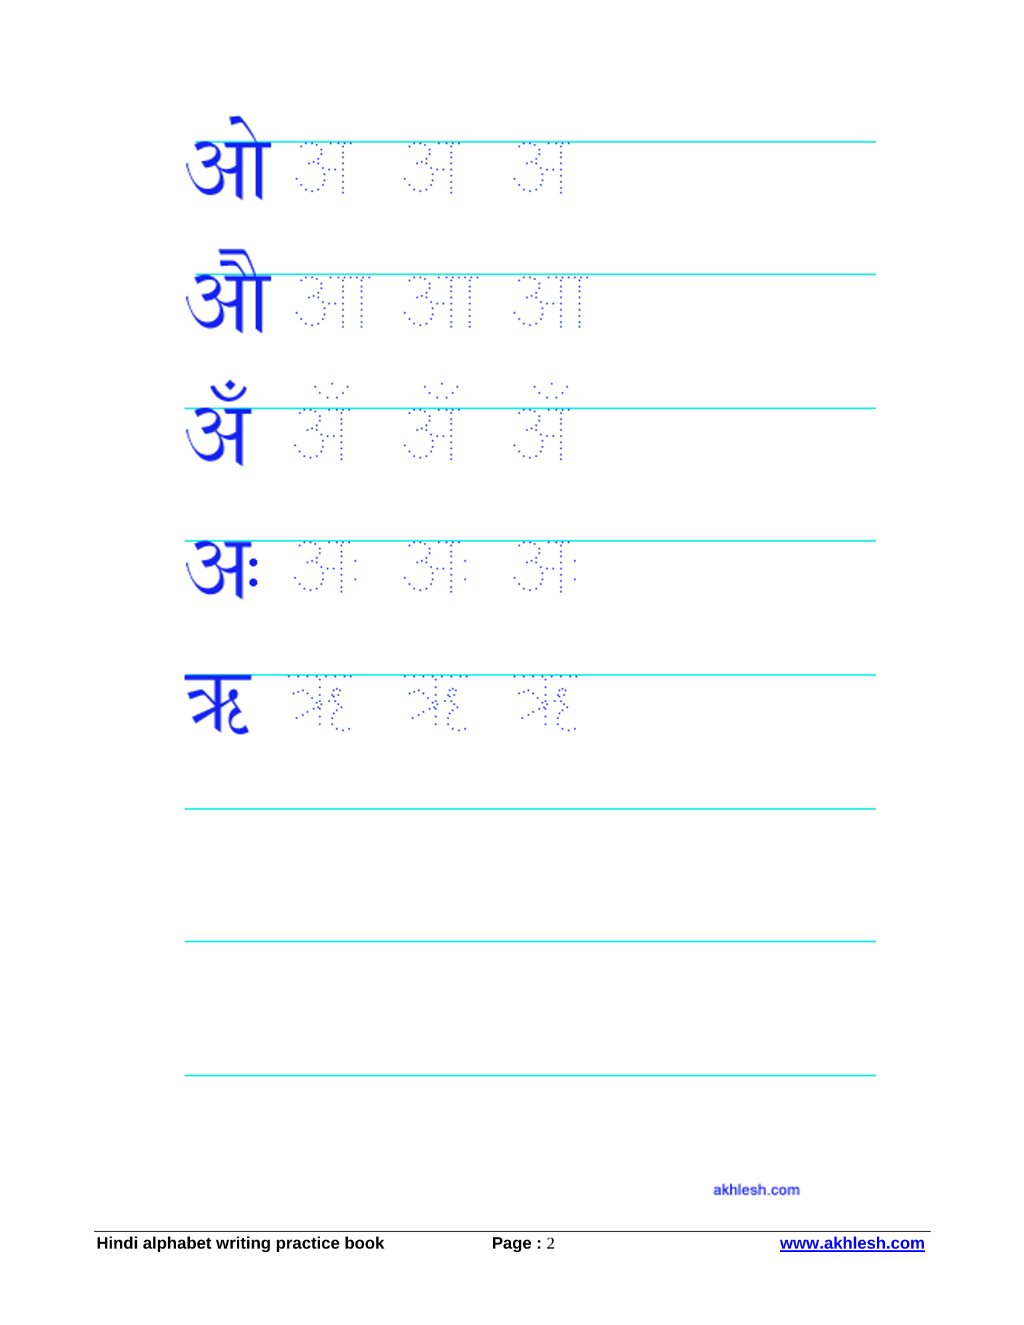 ओ अ अ अ
औ आ आ आ
अँ अँ अँ अँ
अः अः अः अः
ऋ ऋ ऋ ऋ
akhlesh.com
Hindi alphabet writing practice book Page : 2 www.akhlesh.com